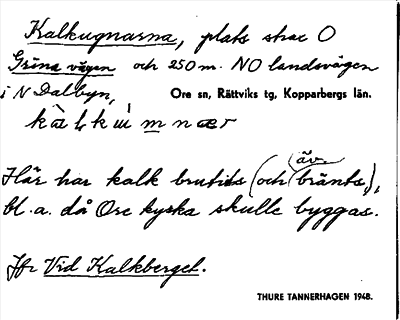 Kalkugnarna, plats strax O
Gröna vägen och 250 m. NO landsvägen
i N Dalbyn, Ore sn, Rättviks tg, Kopparbergs län.
Här har kalk brutits (och (äv. bränts),
bl. a. då Ore kyrka skulle byggas.
Jfr Vid Kalkberget.
THURE TANNERHAGEN 1948.